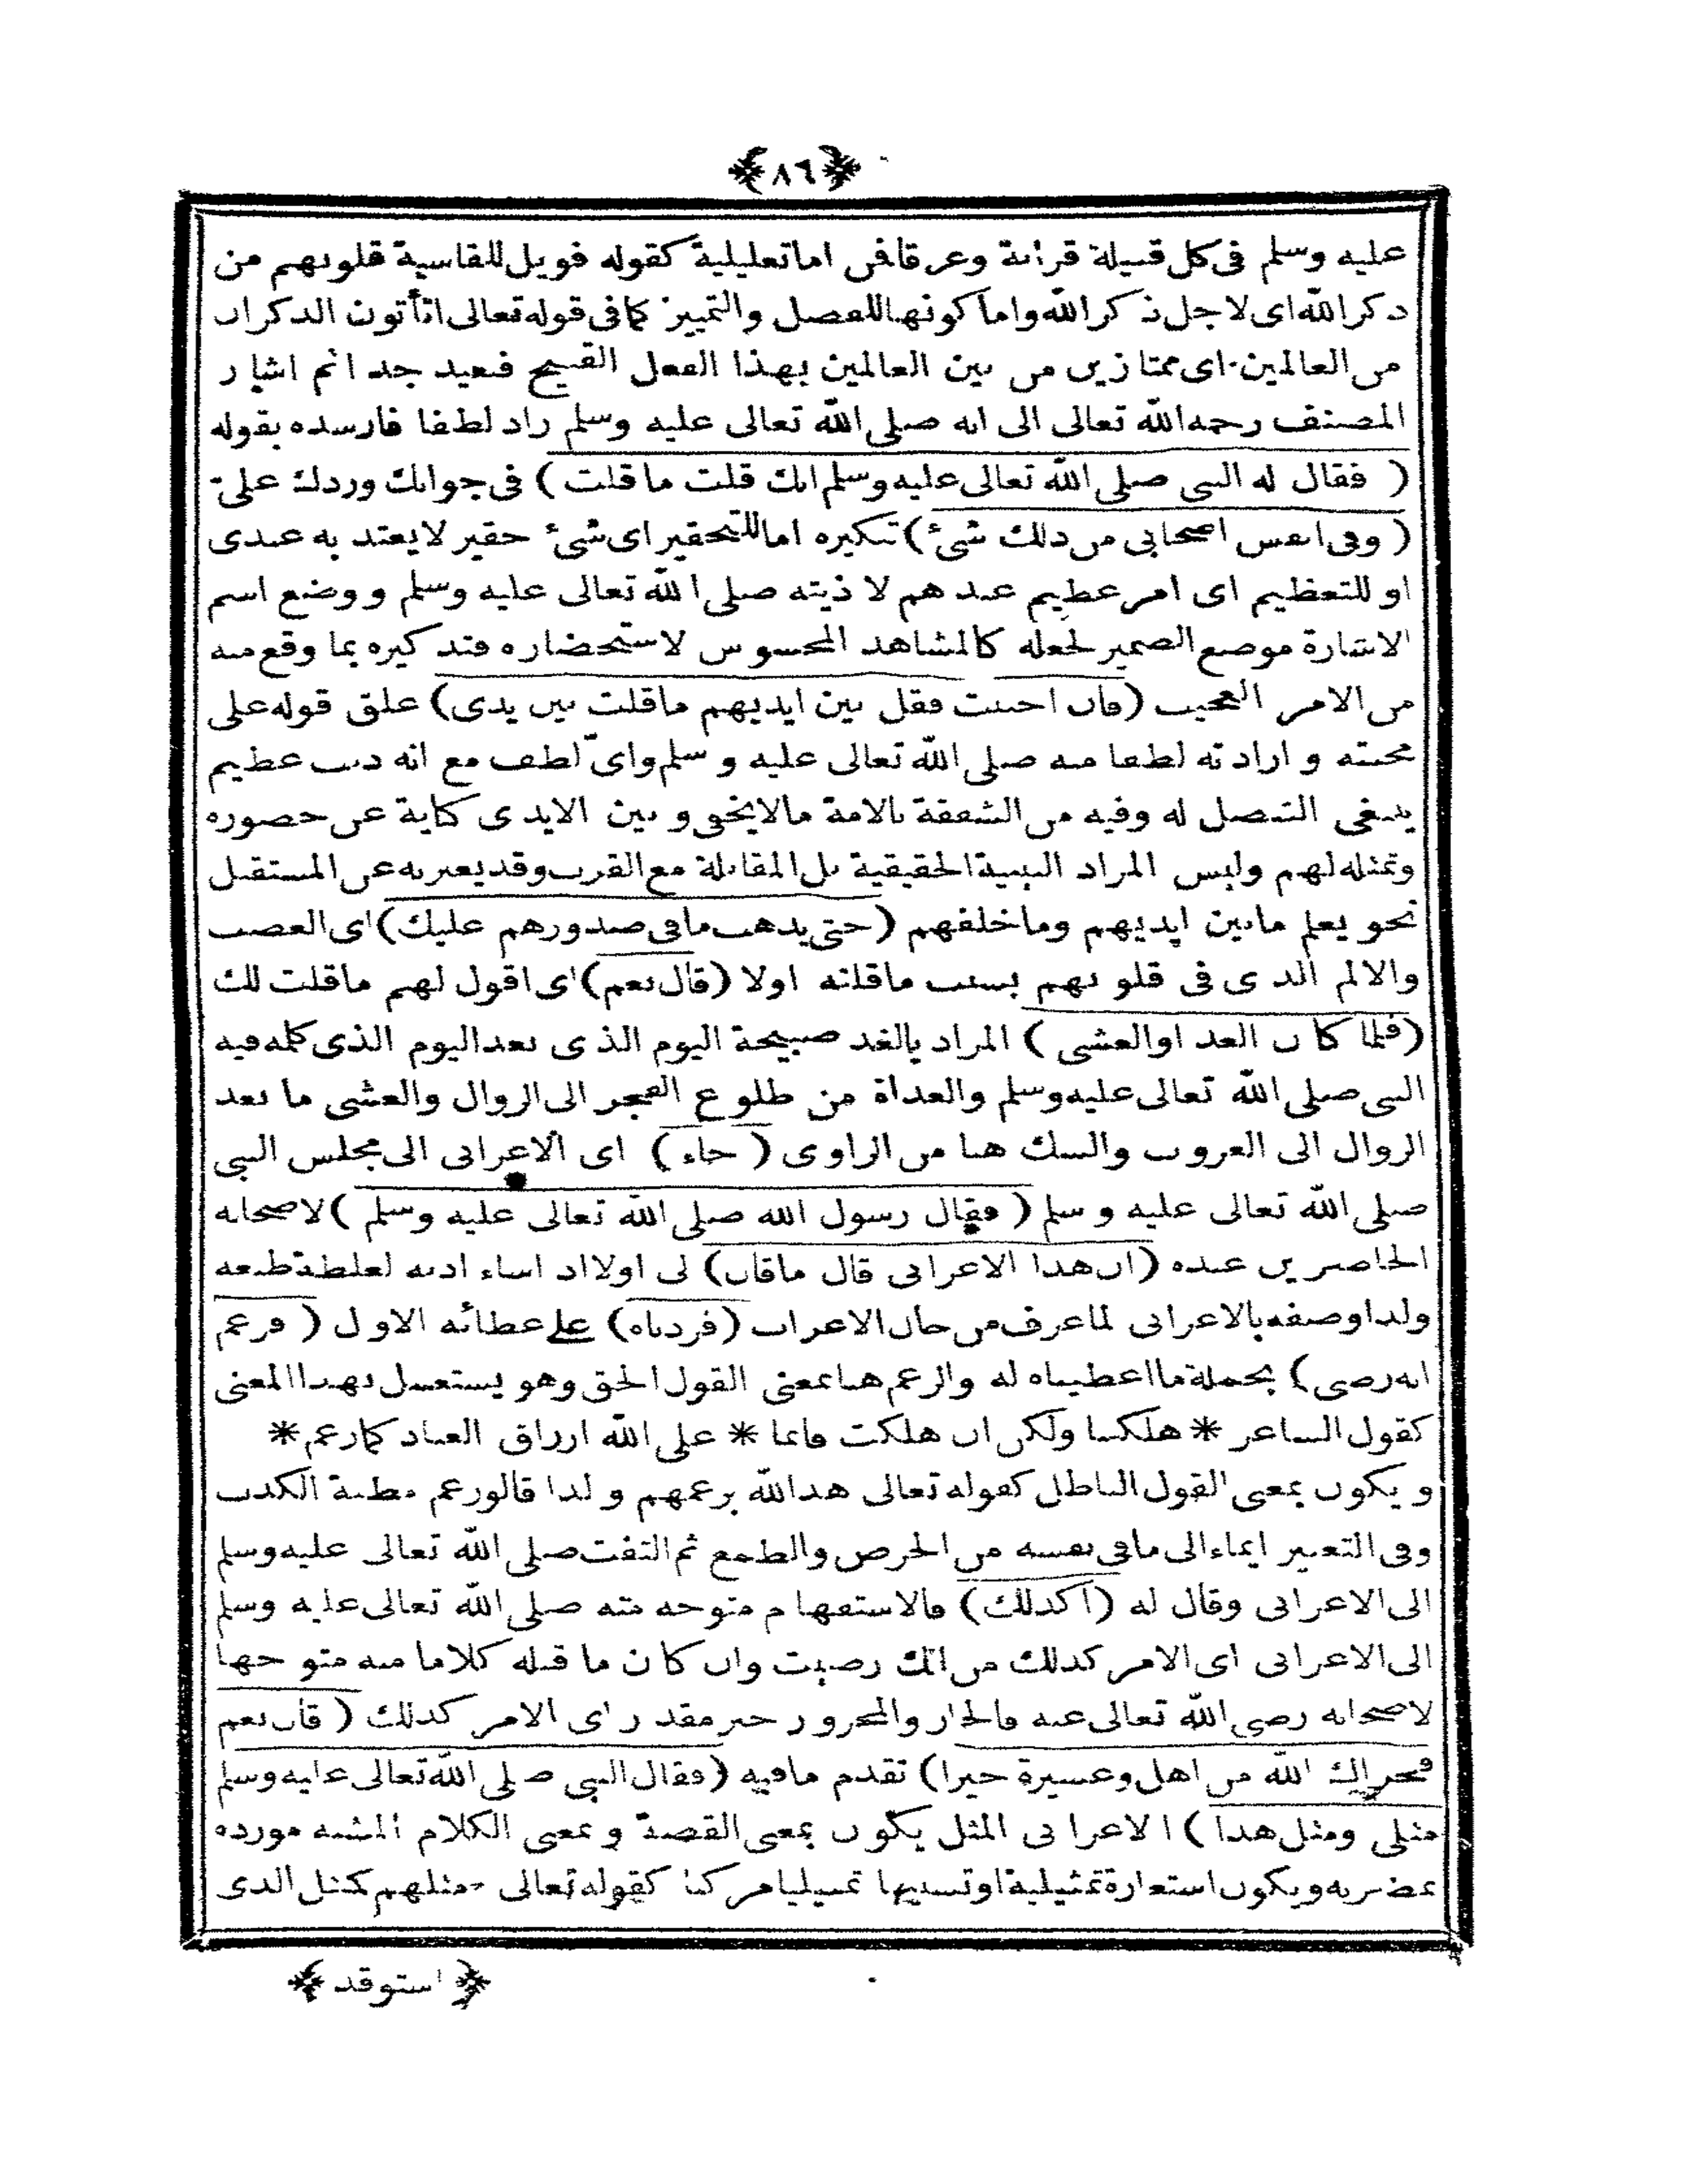 ﴿٨٦﴾
عليه وسلم فى كل قبيلة قرابة وعرقا فمن اما تعليلية كقوله فويل للقاسية قلوبهم من
ذكر الله اى لاجل ذكر الله واما كونها للفصل والتمييز كما فى قوله تعالى اتأتون الذكران
من العالمين اى ممتازين من بين العالمين بهذا الفعل القبيح فبعيد جدا ثم اشار
المصنف رحمه الله تعالى الى انه صلى الله تعالى عليه وسلم زاد لطفا فارشده بقوله
( فقال له النبى صلى الله تعالى عليه وسلم انك قلت ما قلت ) فى جوابك وردك على
( وفى انفس اصحابى من ذلك شئ ) تنكيره اما للتحقير اى شئ حقير لا يعتد به عندى
او للتعظيم اى امر عظيم عندهم لاذيته صلى الله تعالى عليه وسلم ووضع اسم
الاشارة موضع الضمير لجعله كالمشاهد المحسوس لاستحضاره فتذكيره بما وقع منه
من الامر العجيب (فان احببت فقل بين ايديهم ماقلت بين يدى) علق قوله على
محبته و ارادته لطفا منه صلى الله تعالى عليه و سلم واى لطف مع انه ذنب عظيم
ينبغى التنصل له وفيه من الشفقة بالامة مالا يخفى و بين الايدى كناية عن حضوره
وتمثله لهم وليس المراد البينية الحقيقية بل المقابلة مع القرب وقد يعبر به عن المستقبل
نحو يعلم مابين ايديهم وما خلفهم (حتى يذهب مافى صدورهم عليك) اى الغضب
والالم الذى فى قلوبهم بسبب ماقلته اولا (قال نعم) اى اقول لهم ماقلت لك
(فلما كان الغد اوالعشى ) المراد بالغد صبيحة اليوم الذى بعد اليوم الذى كلمه فيه
النبى صلى الله تعالى عليه وسلم والغداة من طلوع الفجر الى الزوال والعشى ما بعد
الزوال الى الغروب والشك هنا من الراوى ( جاء ) اى الاعرابى الى مجلس النبى
صلى الله تعالى عليه و سلم ( فقال رسول الله صلى الله تعالى عليه وسلم ) لاصحابه
الحاضرين عنده (ان هذا الاعرابى قال ماقال) لى اولا اذ اساء ادبه لغلظة طبعه
ولذا وصفه بالاعرابى لما عرف من حال الاعراب (فزدناه) على عطائه الاول ( فزعم
انه رضى ) بجملة ما اعطيناه له والزعم هنا بمعنى القول الحق وهو يستعمل بهذا المعنى
كقول الشاعر * هلكنا ولكن ان هلكت فانما * على الله ارزاق العباد كما زعم *
و يكون بمعنى القول الباطل كقوله تعالى هذا لله بزعمهم و لذا قالوا زعم مطية الكذب
وفى التعبير ايماء الى مافى نفسه من الحرص والطمع ثم التفت صلى الله تعالى عليه وسلم
الى الاعرابى وقال له (أكذلك) فالاستفهام متوجه منه صلى الله تعالى عليه وسلم
الى الاعرابى اى الامر كذلك من انك رضيت وان كان ما قبله كلاما منه متوجها
لاصحابه رضى الله تعالى عنه فالجار والمجرور خبر مقدر اى الامر كذلك ( قال نعم
فجزاك الله من اهل وعشيرة خيرا) تقدم مافيه (فقال النبى صلى الله تعالى عليه وسلم
مثلى ومثل هذا ) الاعرابى المثل يكون بمعنى القصة و بمعنى الكلام المشبه مورده
بمضربه ويكون استعارة تمثيلية او تشبيها تمثيليا مركبا كقوله تعالى مثلهم كمثل الذى
﴿ استوقد ﴾